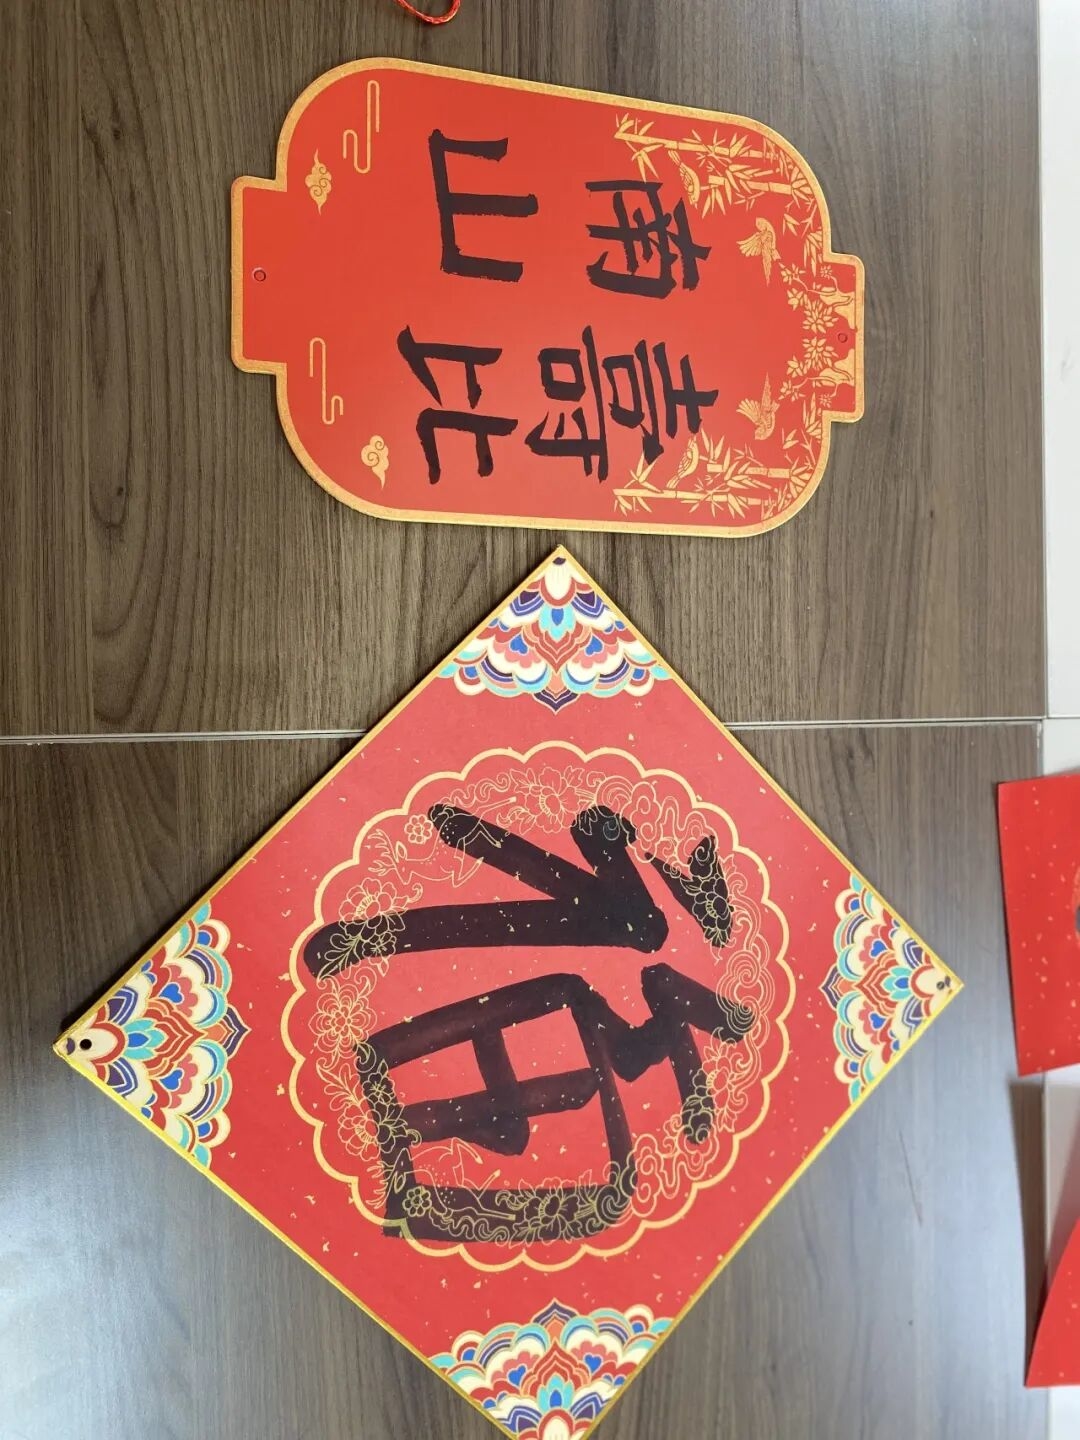 壽比
南山
福